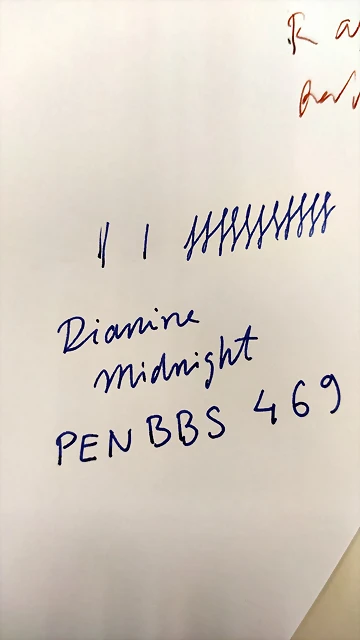 Diamine
Midnight
PENBBS 469